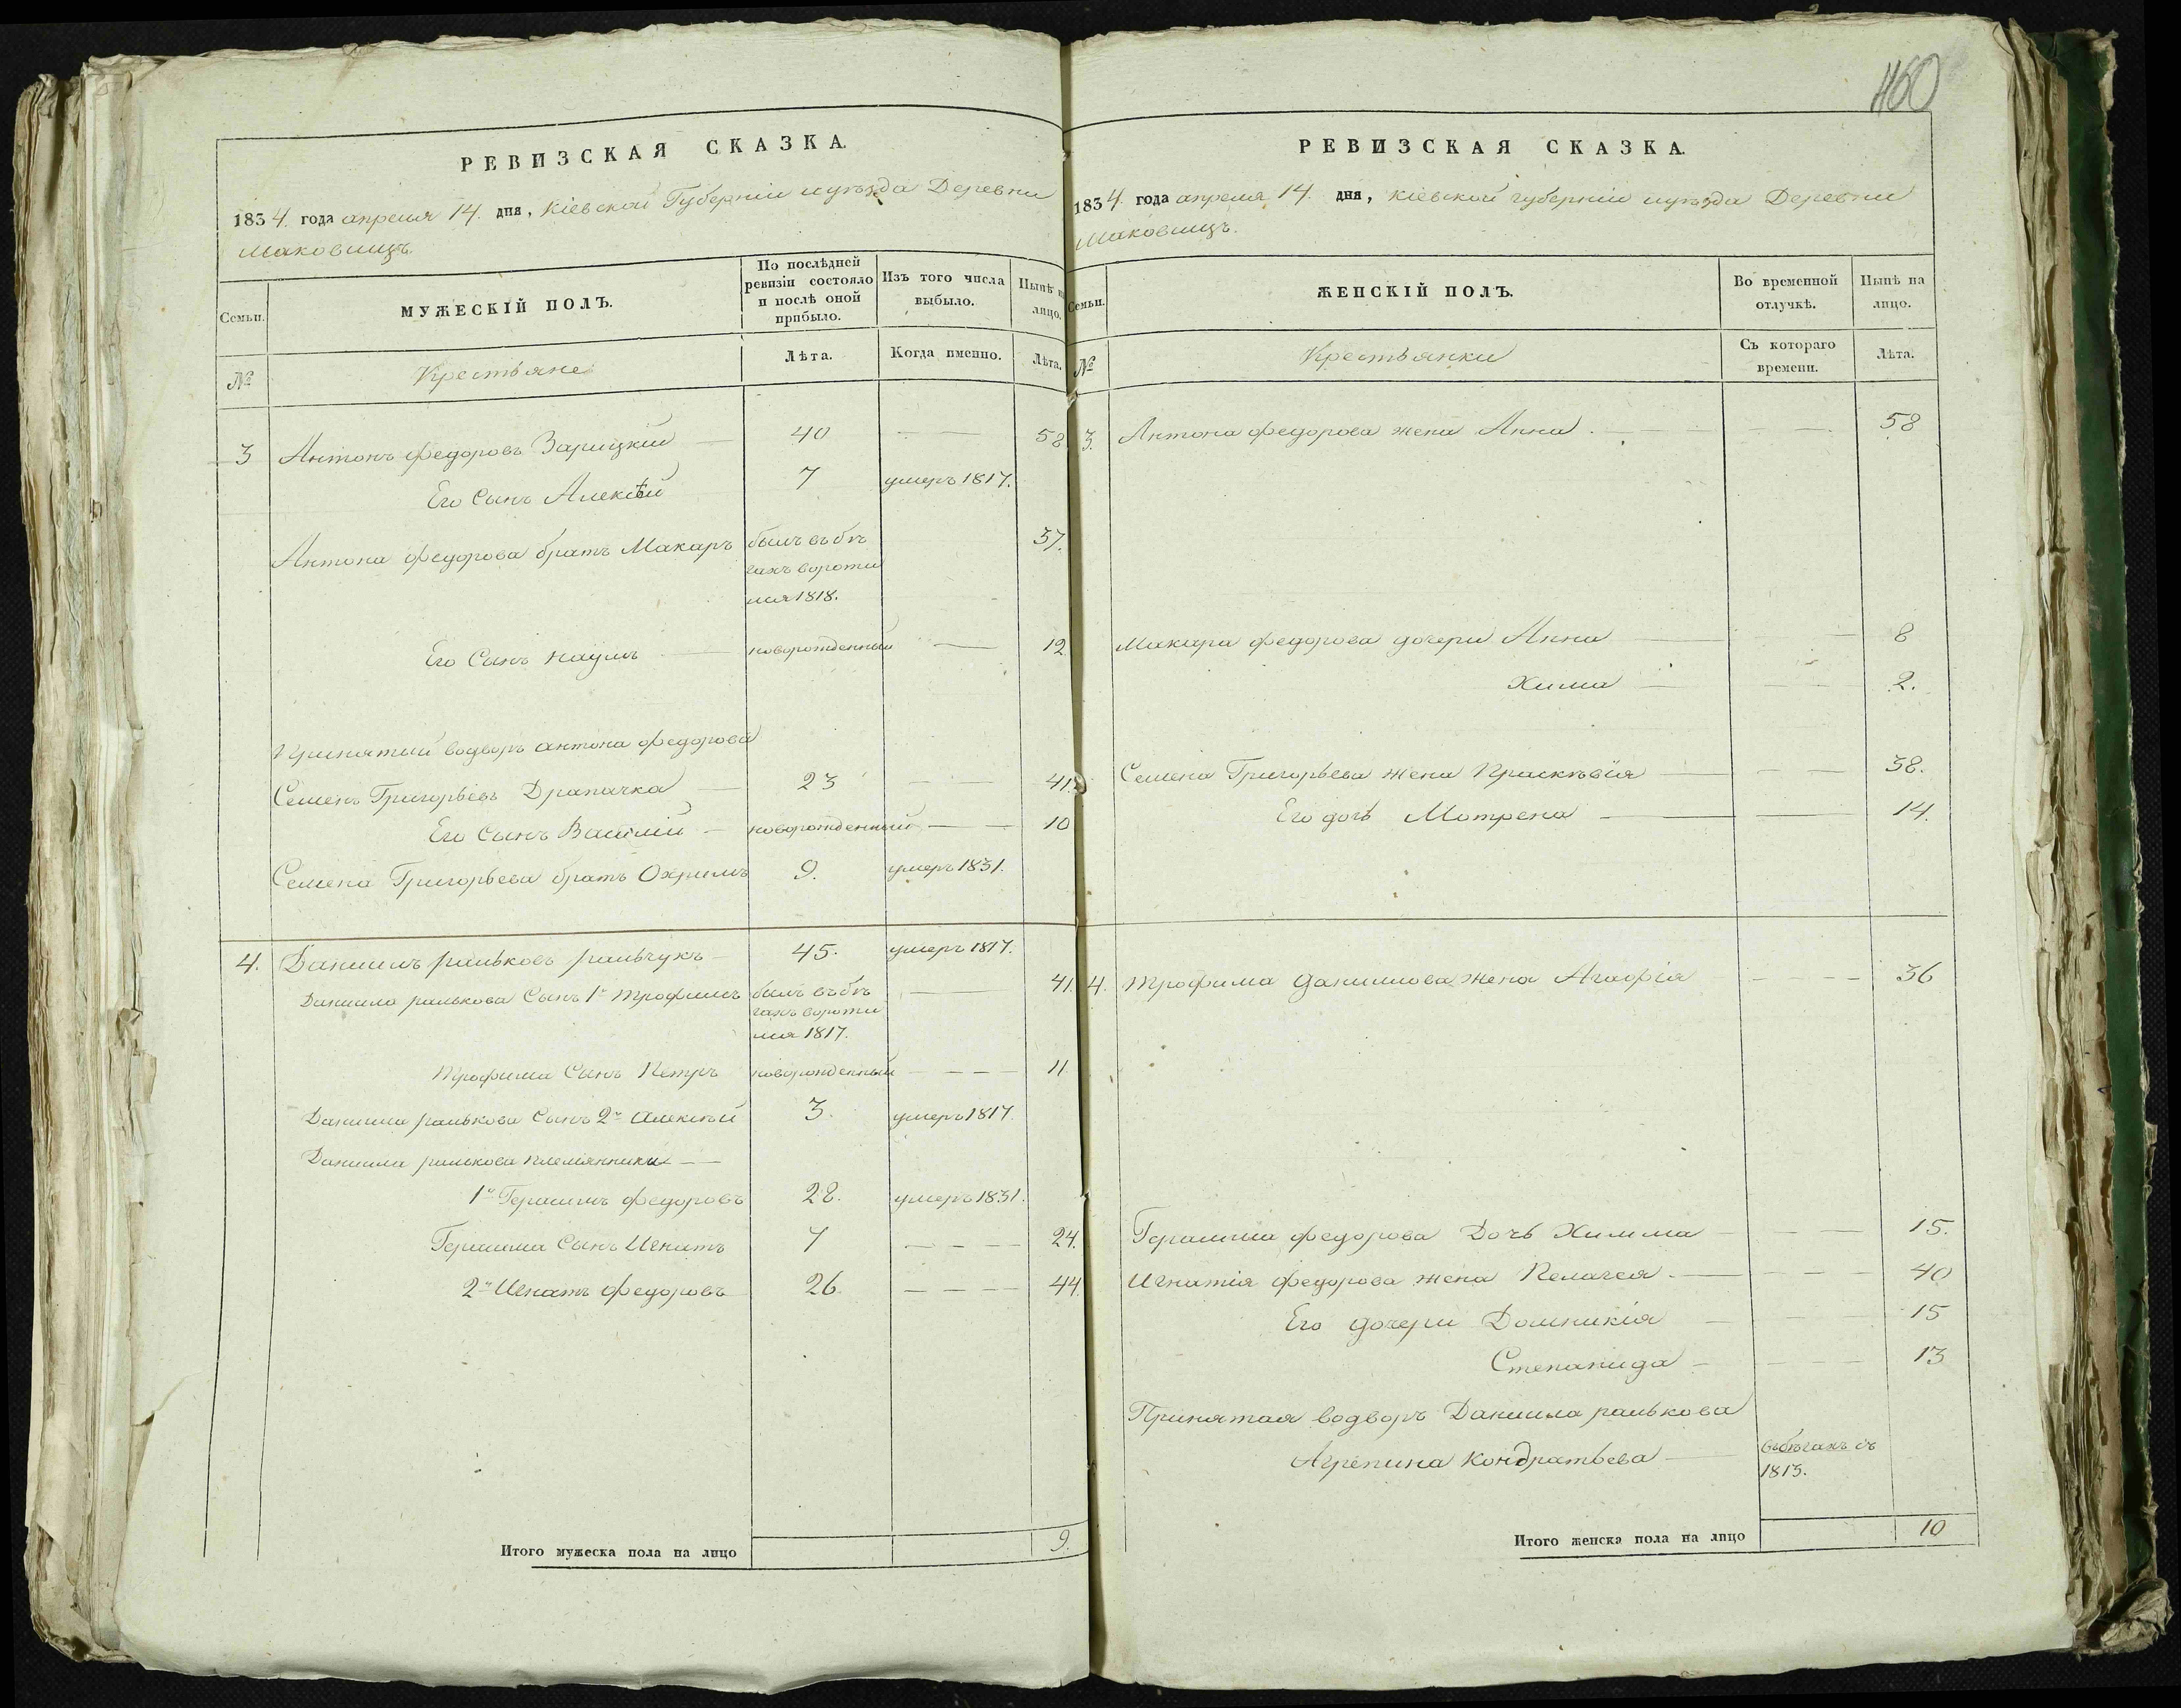 460
РЕВИЗСКАЯ СКАЗКА.
1834 года апреля 14 дня, Кіевской Губерніи и уезда Деревни
Маковищъ.
Семьи.
МУЖЕСКІЙ ПОЛЪ.
По послѣдней ревизіи состояло и послѣ оной прибыло.
Изъ того числа выбыло.
Нынѣ на лицо.
№
Крестьяне
Лѣта.
Когда именно.
Лѣта.
3 Антонъ Федоровъ Зарицкій — 40 — — 58
Его Сынъ Алексѣй 7 умеръ 1817.
Антона Федорова братъ Макаръ былъ въ бѣ 37.
гахъ вороти
лся 1818.
Его Сынъ Наумъ — новорожденный — 12
Принятый водворъ Антона Федорова
Семенъ Григорьевъ Драпачка — 23 — — 41.
Его Сынъ Василій — новорожденный — — 10
Семена Григорьева братъ Охримъ 9. умеръ 1831.
4. Данилъ 45. умеръ 1817.
Данила сынъ 1й Трофимъ былъ въ бѣ — 41.
гахъ вороти
лся 1817.
Трофима Сынъ Петръ новорожденный — — — 11.
Данила Сынъ 2й Алексѣй 3. умеръ 1817.
Данила племянники —
1й Герасимъ Федоровъ 28. умеръ 1831.
Герасима Сынъ Игнатъ 7 — — — 24.
2й Игнатъ Федоровъ 26. — — — 44.
Итого мужеска пола на лицо 9.
РЕВИЗСКАЯ СКАЗКА.
1834 года апреля 14 дня, Кіевской губерніи и уезда Деревни
Маковищъ.
Семьи.
ЖЕНСКІЙ ПОЛЪ.
Во временной отлучкѣ.
Нынѣ на лицо.
№
Крестьянки
Съ котораго времени.
Лѣта.
3. Антона Федорова жена Анна — — — 58
Макара Федорова дочери Анна — — 8
Хима — — — 2.
Семена Григорьева жена Прасковія — — — 38.
Его дочь Мотрена — — 14.
4. Трофима Данилова жена Агафія — — — 36
Герасима Федорова Дочь Химма — — — 15.
Игнатія Федорова жена Пелагея — — — — 40
Его дочери Домникія — — — 15
Степанида — — — — 13
Принятая водворъ Данила
Агрепина Кондратьева — въ бѣгахъ съ
1815.
Итого женска пола на лицо 10